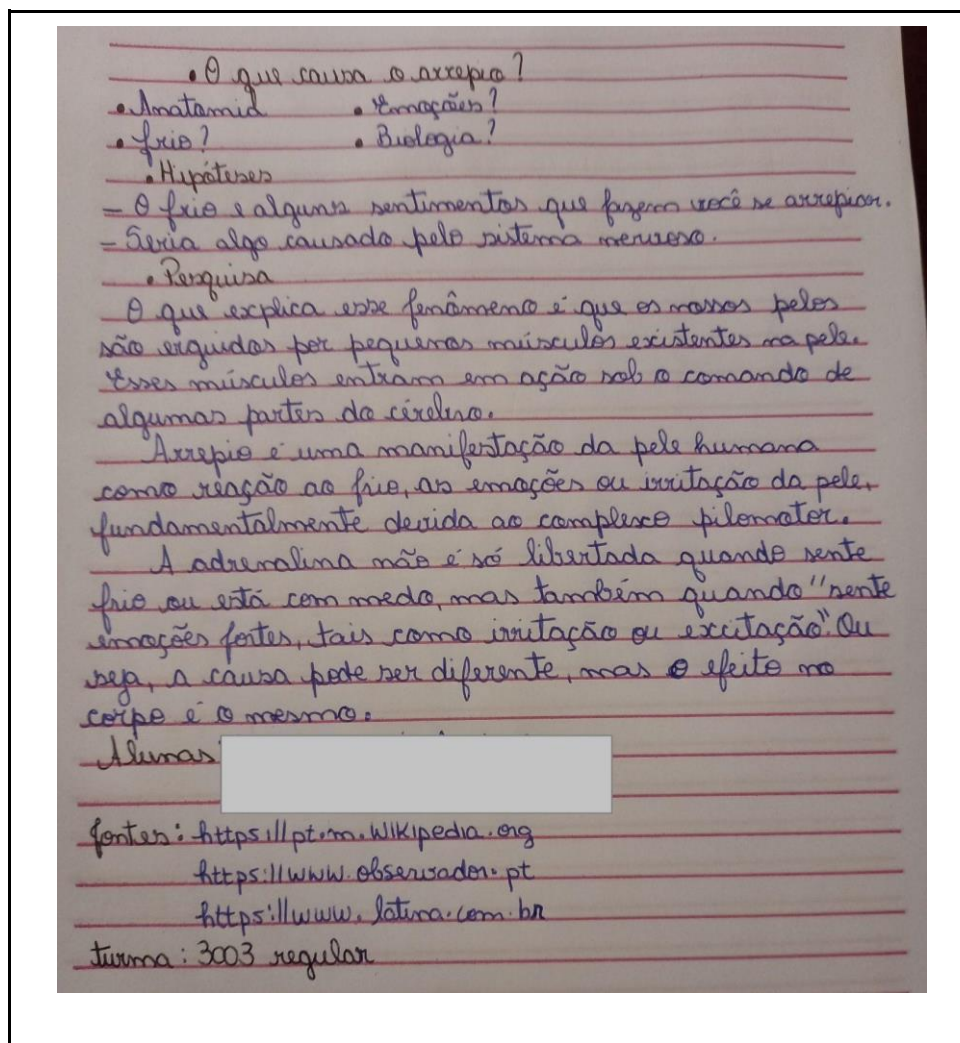 • O que causa o arrepio?
• Anatomia • Emoções?
• frio? • Biologia?
• Hipóteses
- O frio e alguns sentimentos que fazem você se arrepiar.
- Seria algo causado pelo sistema nervoso.
• Pesquisa
O que explica esse fenômeno é que os nossos pelos
são erguidos por pequenos músculos existentes na pele.
Esses músculos entram em ação sob o comando de
algumas partes do cérebro.
Arrepio é uma manifestação da pele humana
como reação ao frio, as emoções ou irritação da pele,
fundamentalmente devida ao complexo pilomotor.
A adrenalina não é só libertada quando sente
frio ou está com medo, mas também quando "sente
emoções fortes, tais como irritação ou excitação". Ou
seja, a causa pode ser diferente, mas o efeito no
corpo é o mesmo.
Alunas
fontes: https://pt.m.Wikipedia.org
https://www.observador.pt
https://www.latina.com.br
turma: 3003 regular